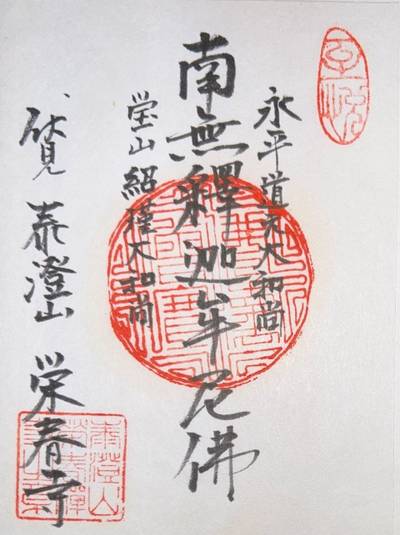 永平道元大和尚
南無釋迦牟尼佛
瑩山紹瑾大和尚
伏見 泰澄山 栄春寺